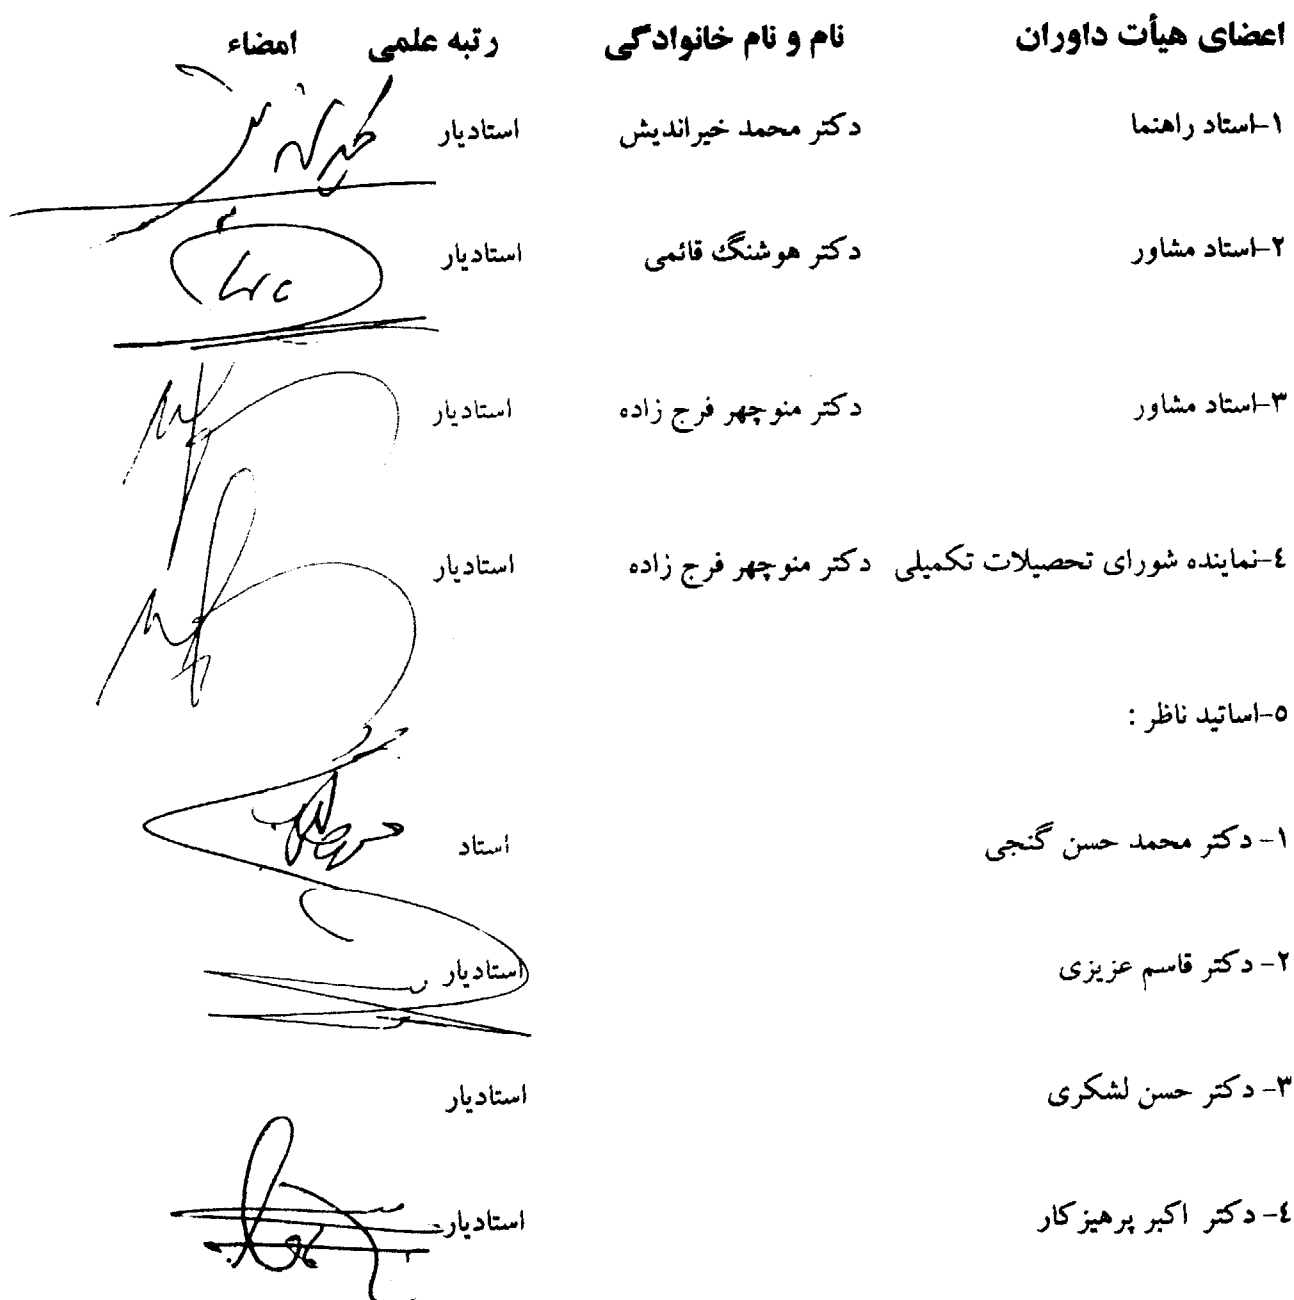 اعضای هیأت داوران نام و نام خانوادگی رتبه علمی امضاء
۱-استاد راهنما دکتر محمد خیراندیش استادیار
۲-استاد مشاور دکتر هوشنگ قائمی استادیار
۳-استاد مشاور دکتر منوچهر فرج زاده استادیار
٤-نماینده شورای تحصیلات تکمیلی دکتر منوچهر فرج زاده استادیار
٥-اساتید ناظر :
۱- دکتر محمد حسن گنجی استاد
۲- دکتر قاسم عزیزی استادیار
۳- دکتر حسن لشکری استادیار
٤- دکتر اکبر پرهیزکار استادیار